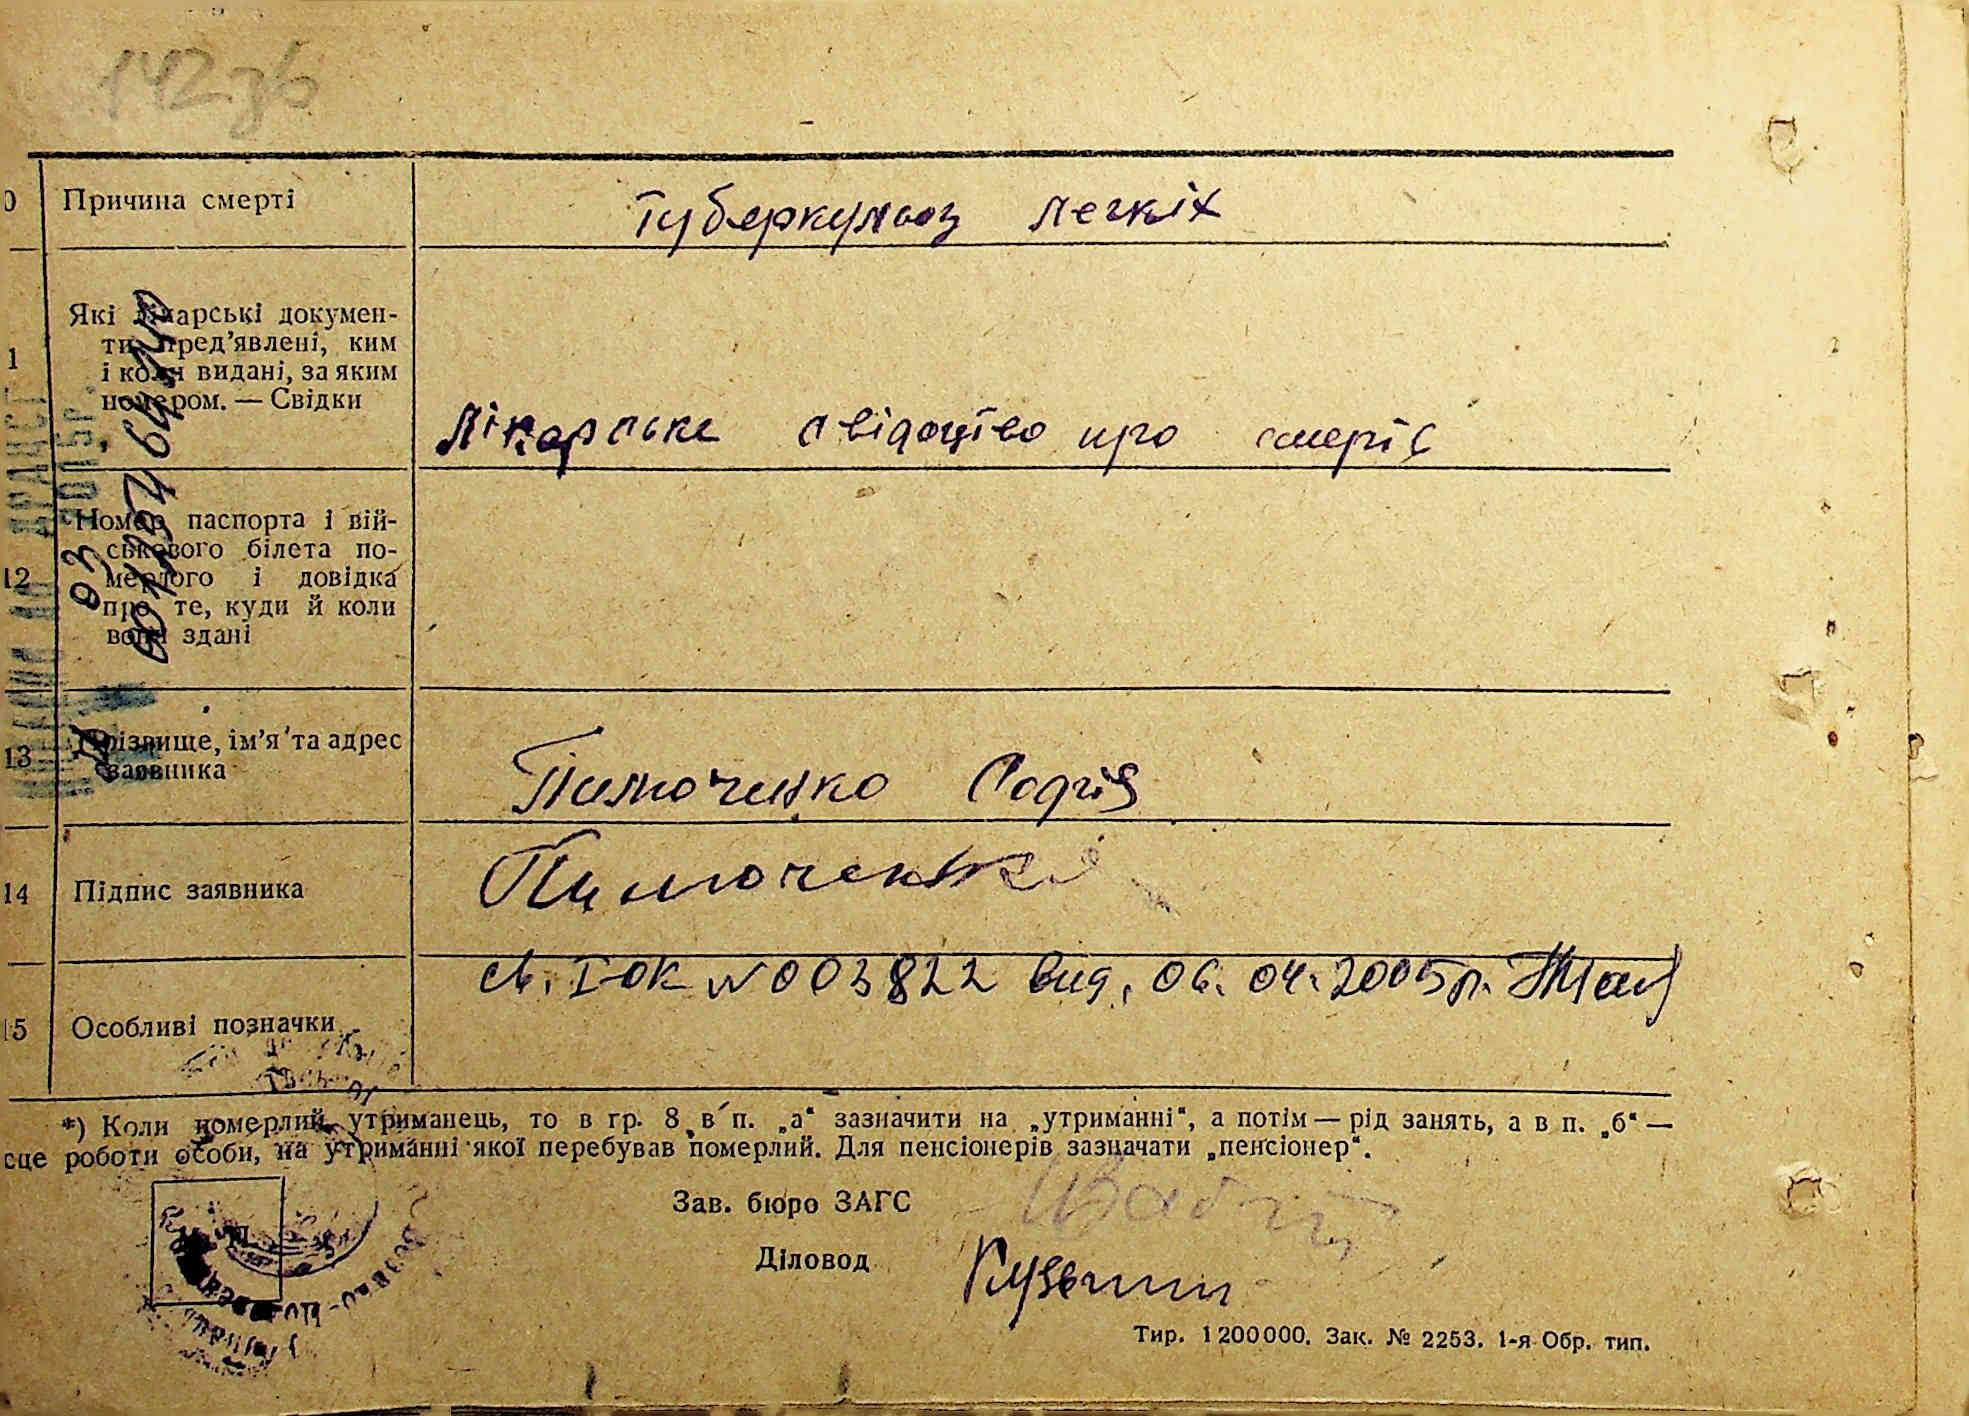 142 зв
0 Причина смерті
Туберкульоз легкіх
1 Які лікарські докумен-
ти пред’явлені, ким
і коли видані, за яким
номером. — Свідки
Лікарське свідоцтво про смерть
12 Номер паспорта і вій-
ськового білета по-
мерлого і довідка
про те, куди й коли
вони здані
13 Прізвище, ім’я та адрес
заявника
Тимоченко Софія
14 Підпис заявника
Тимоченко
св. І-ОК №003822 вид. 06.04.2005р.
15 Особливі позначки
*) Коли померлий утриманець, то в гр. 8 в п. „а“ зазначити на „утриманні“, а потім — рід занять, а в п. „б“ —
сце роботи особи, на утриманні якої перебував померлий. Для пенсіонерів зазначати „пенсіонер“.
Зав. бюро ЗАГС
Діловод
Тир. 1200000. Зак. № 2253. 1-я Обр. тип.